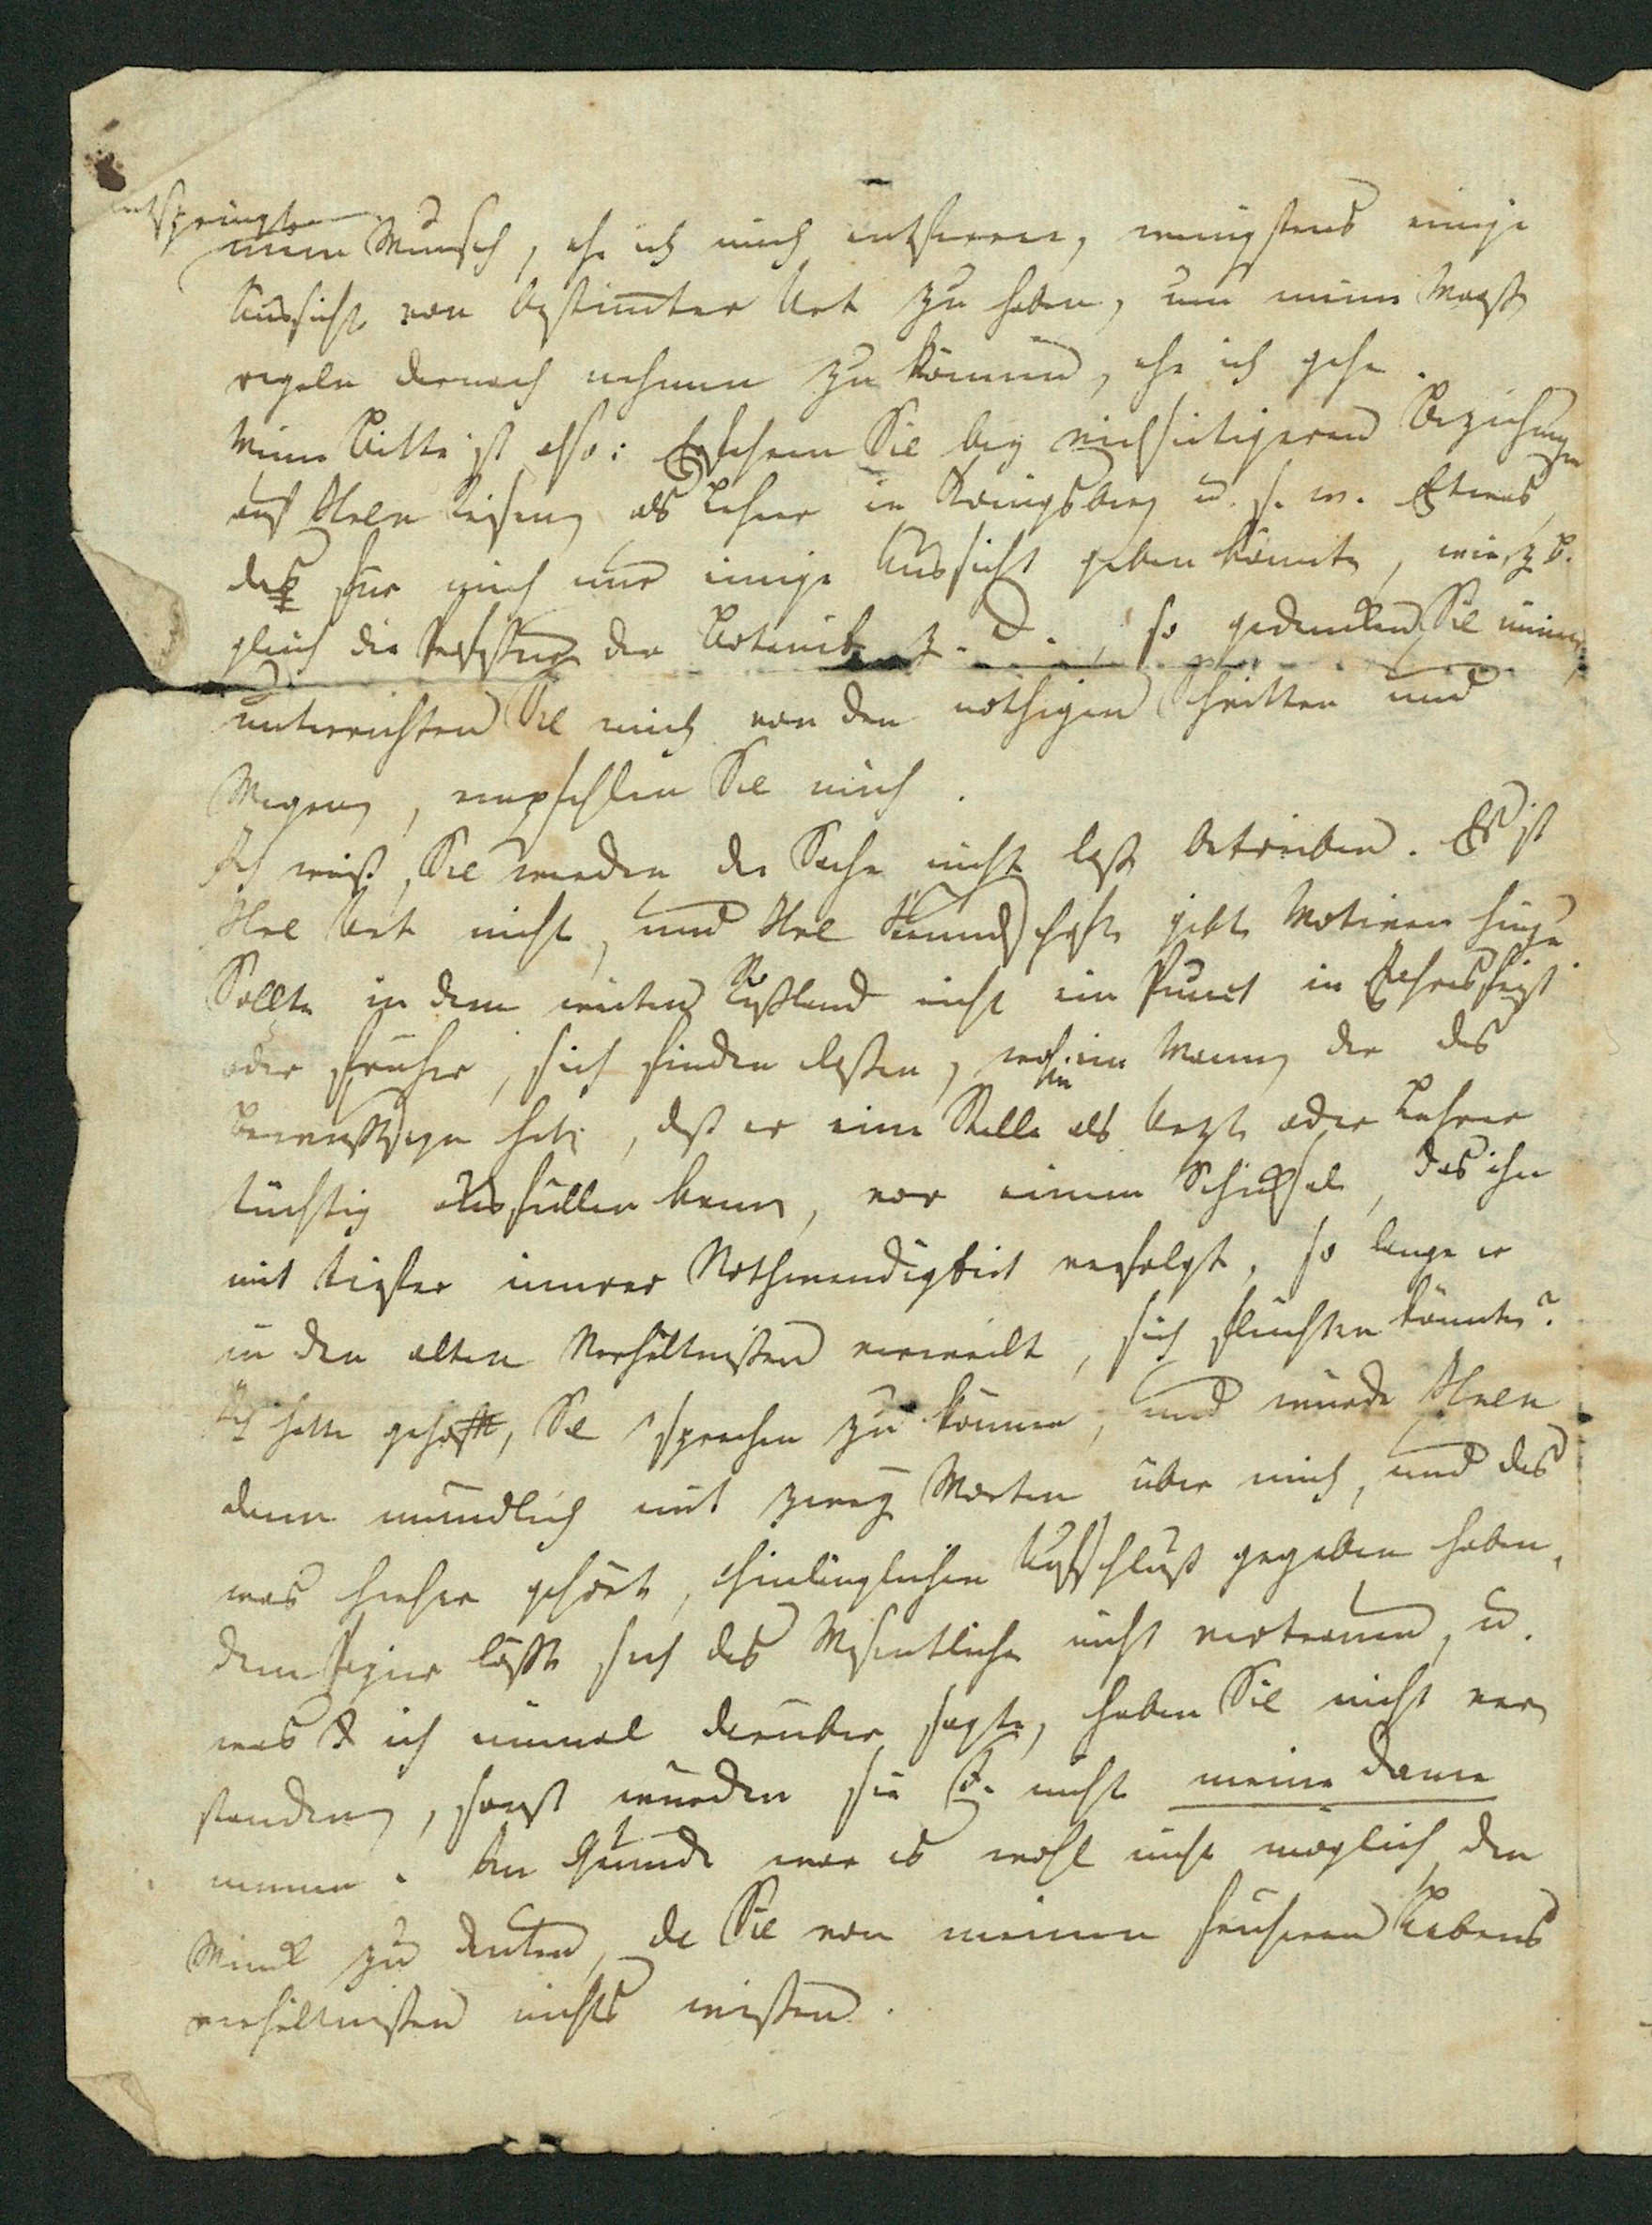 entspringt
mein Wunsch, ehe ich mich entferne, wenigstens einige
Aussicht von bestimter Art zu haben, um meine Maaß
regeln darnach nehmen zu können, ehe ich gehe.
Meine Bitte ist also: Erfahren Sie bey vielseitigeren Beziehungen
auf Ihrer als Lehrer in Königsberg u. s. w. Etwas
das für mich nur einige Aussicht geben könnte, wie z. B.
gleich die der Botanik, so gedenken Sie meiner
unterrichten Sie mich von den nöthigen Schritten und
Wegen, empfehlen Sie mich.
Ich weiß, Sie werden die Sache nicht laß betreiben. Es ist
Ihre Art nicht, und Ihre Freundschaft gibt Motiven hinzu
Sollte in dem weiten Rußland nicht ein Punct in Jahresfrist
oder früher, sich finden lassen, wohin ein Mann, der das
Bewußtseyn hat, daß er eine Stelle als Arzt oder Lehrer
tüchtig ausfüllen kann, vor einem Schicksal, das ihn
mit tiefer innrer Nothwendigkeit verfolgt, so lange er
in den alten Verhältnißen verweilt, sich flüchten könnte?
Ich hatte gehofft, Sie sprechen zu können, und würde Ihnen
dann mündlich mit zwey Worten über mich, und das
was hieher gehört, hinlänglichen Aufschluß gegeben haben,
dem Papier läßt sich das Wesentliche nicht vertrauen, u.
was ich einmal darüber sagte, haben Sie nicht ver
standen, sonst würden sie nicht meine Dame
nennen. Im Grunde war es wohl nicht möglich den
Wink zu deuten, da Sie von meinen früheren Lebens
verhältnißen nichts wissen.